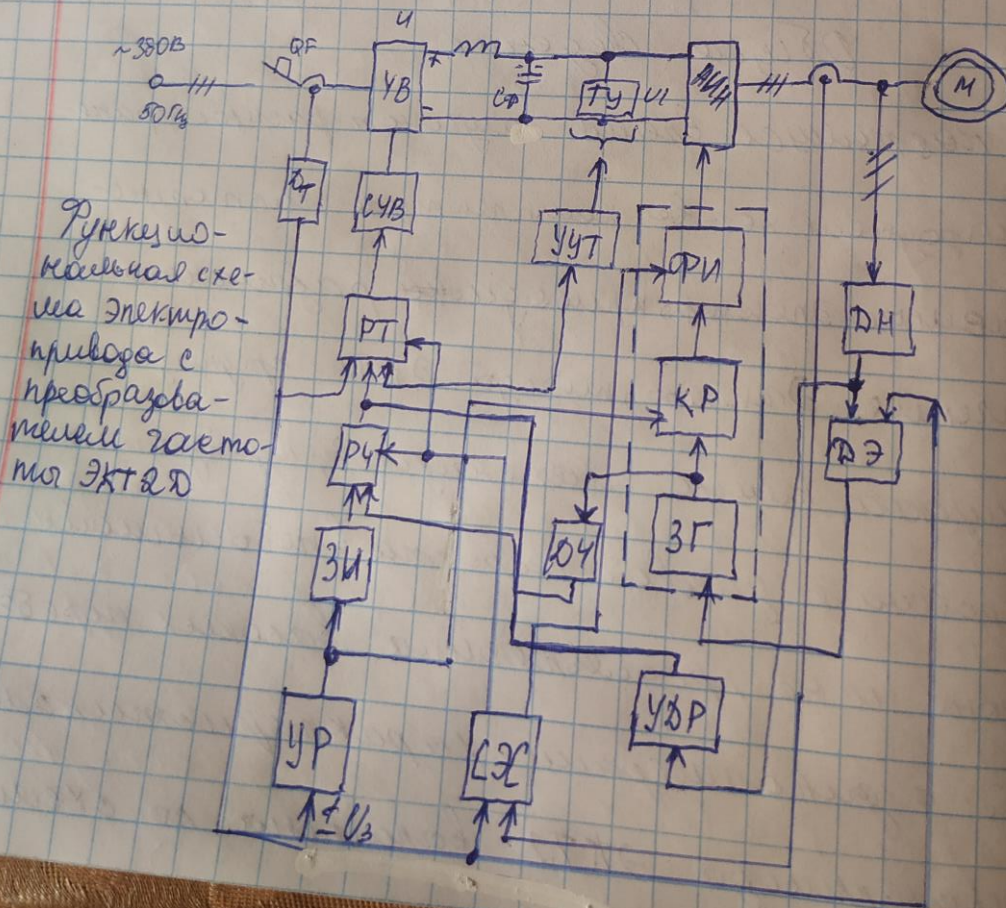 И
~380В
QF
50Гц
УВ
+
−
Сф
ТУ
И
АИН
М
ДТ
СУВ
УУТ
ФИ
ДН
РТ
КР
ДЭ
РЧ
ЗИ
ДЧ
ЗГ
УР
СЭС
УДР
± Uз
Функцио-
нальная схе-
ма электро-
привода с
преобразова-
телем часто-
ты ЭКТ2Д